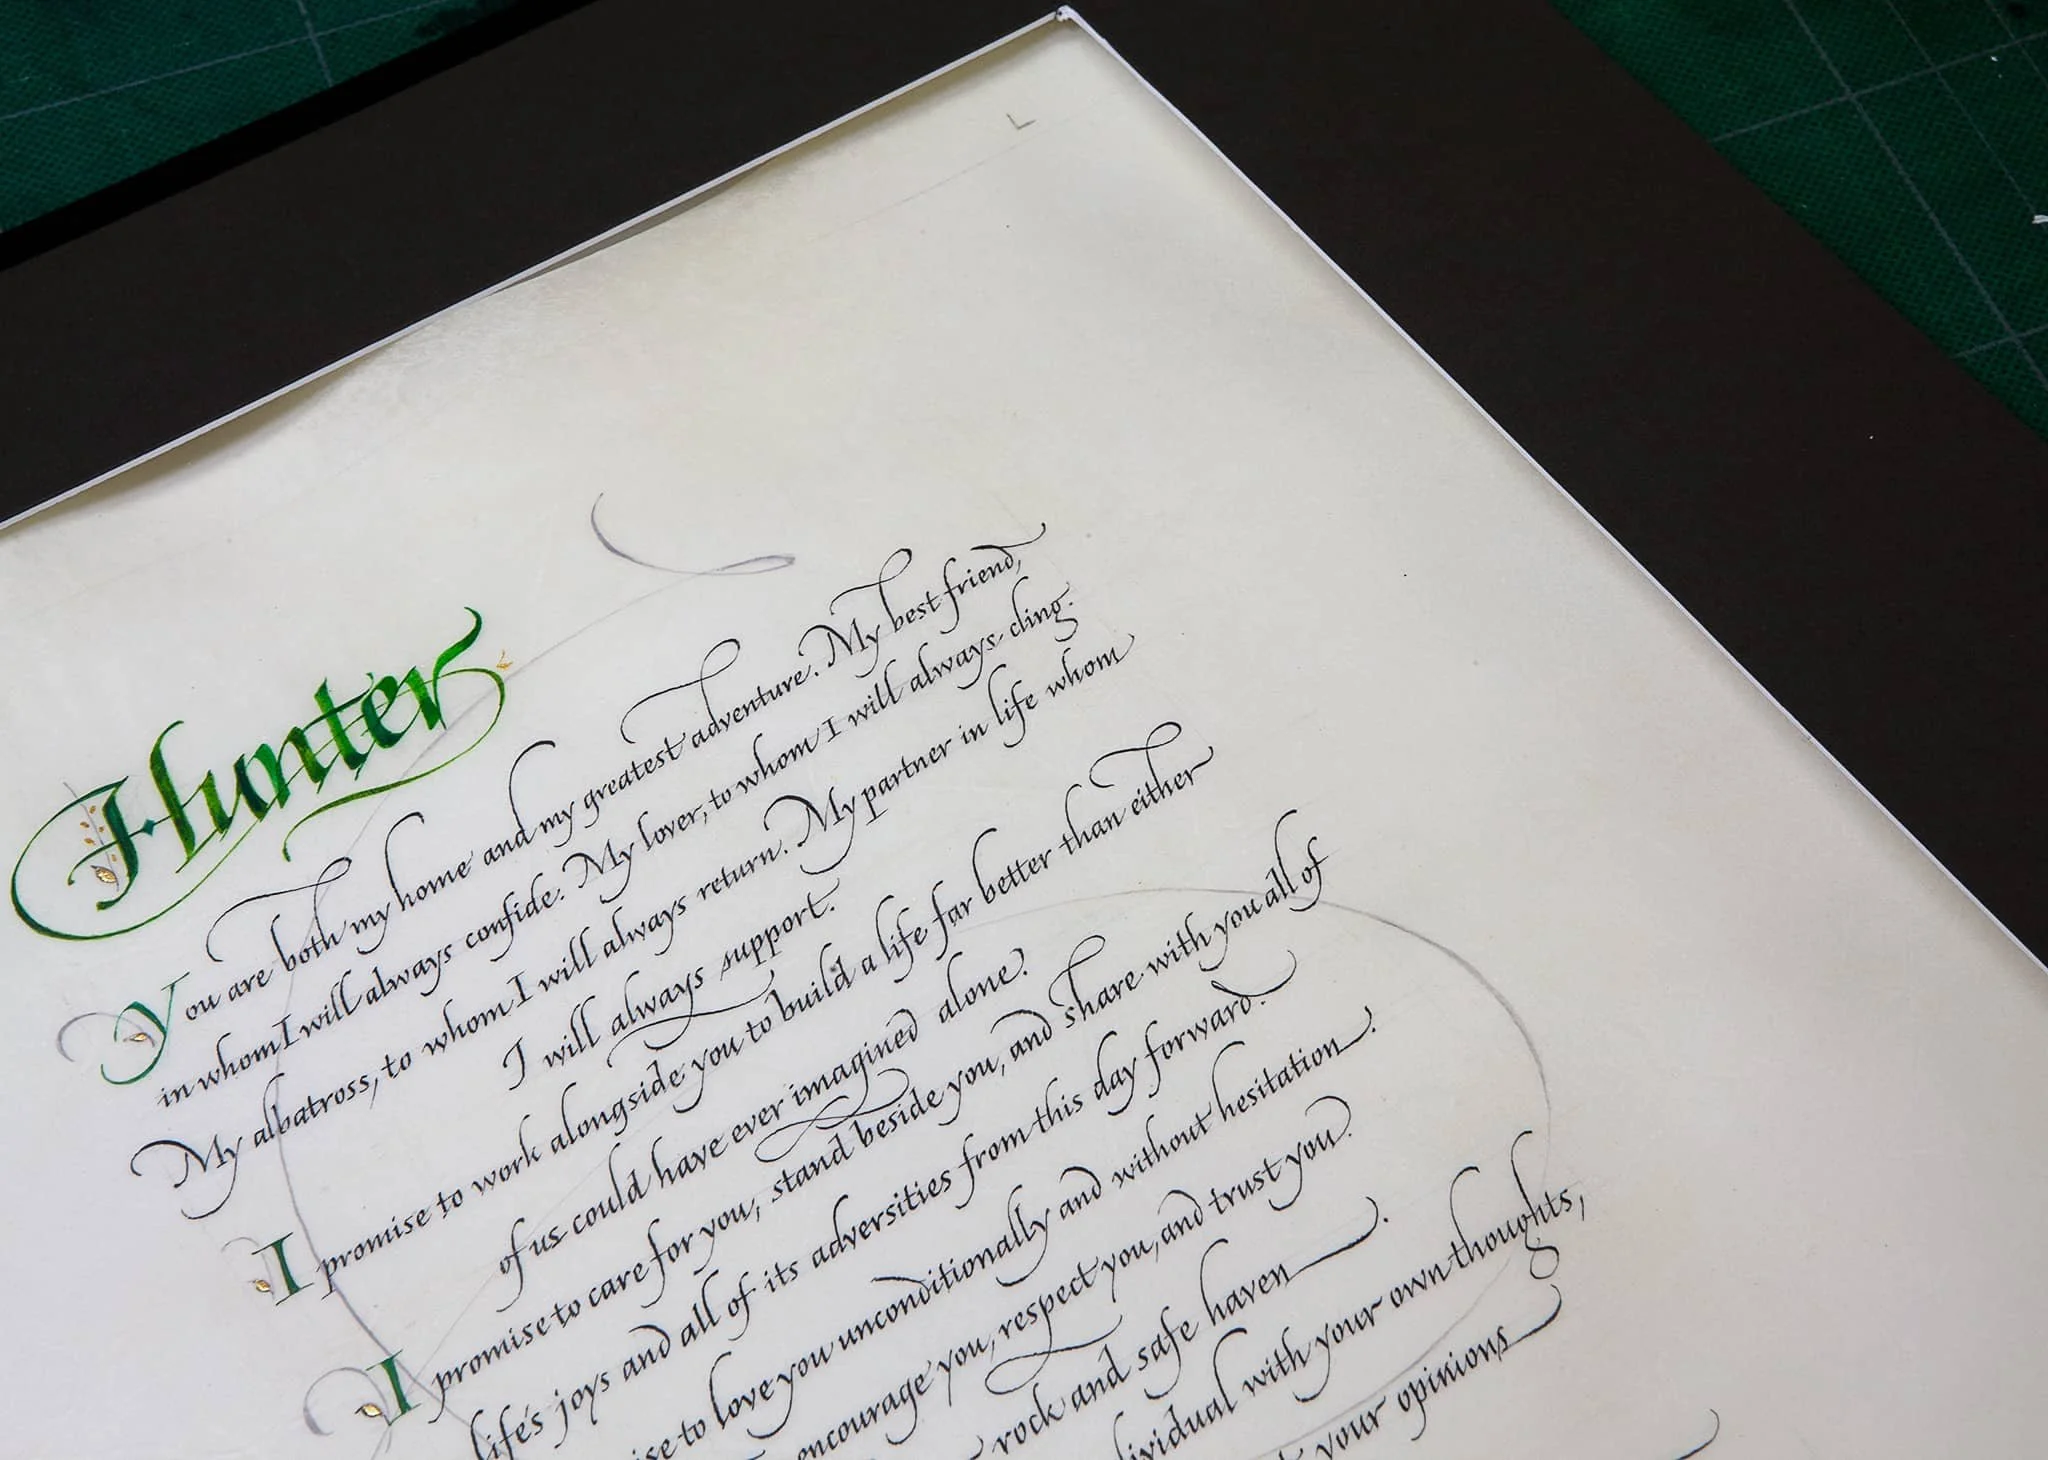 Hunter
You are both my home and my greatest adventure. My best friend,
in whom I will always confide. My lover, to whom I will always cling.
My albatross, to whom I will always return. My partner in life whom
I will always support.
I promise to work alongside you to build a life far better than either
of us could have ever imagined alone.
I promise to care for you, stand beside you, and share with you all of
life's joys and all of its adversities from this day forward.
ise to love you unconditionally and without hesitation.
encourage you, respect you, and trust you.
rock and safe haven.
ividual with your own thoughts,
your opinions